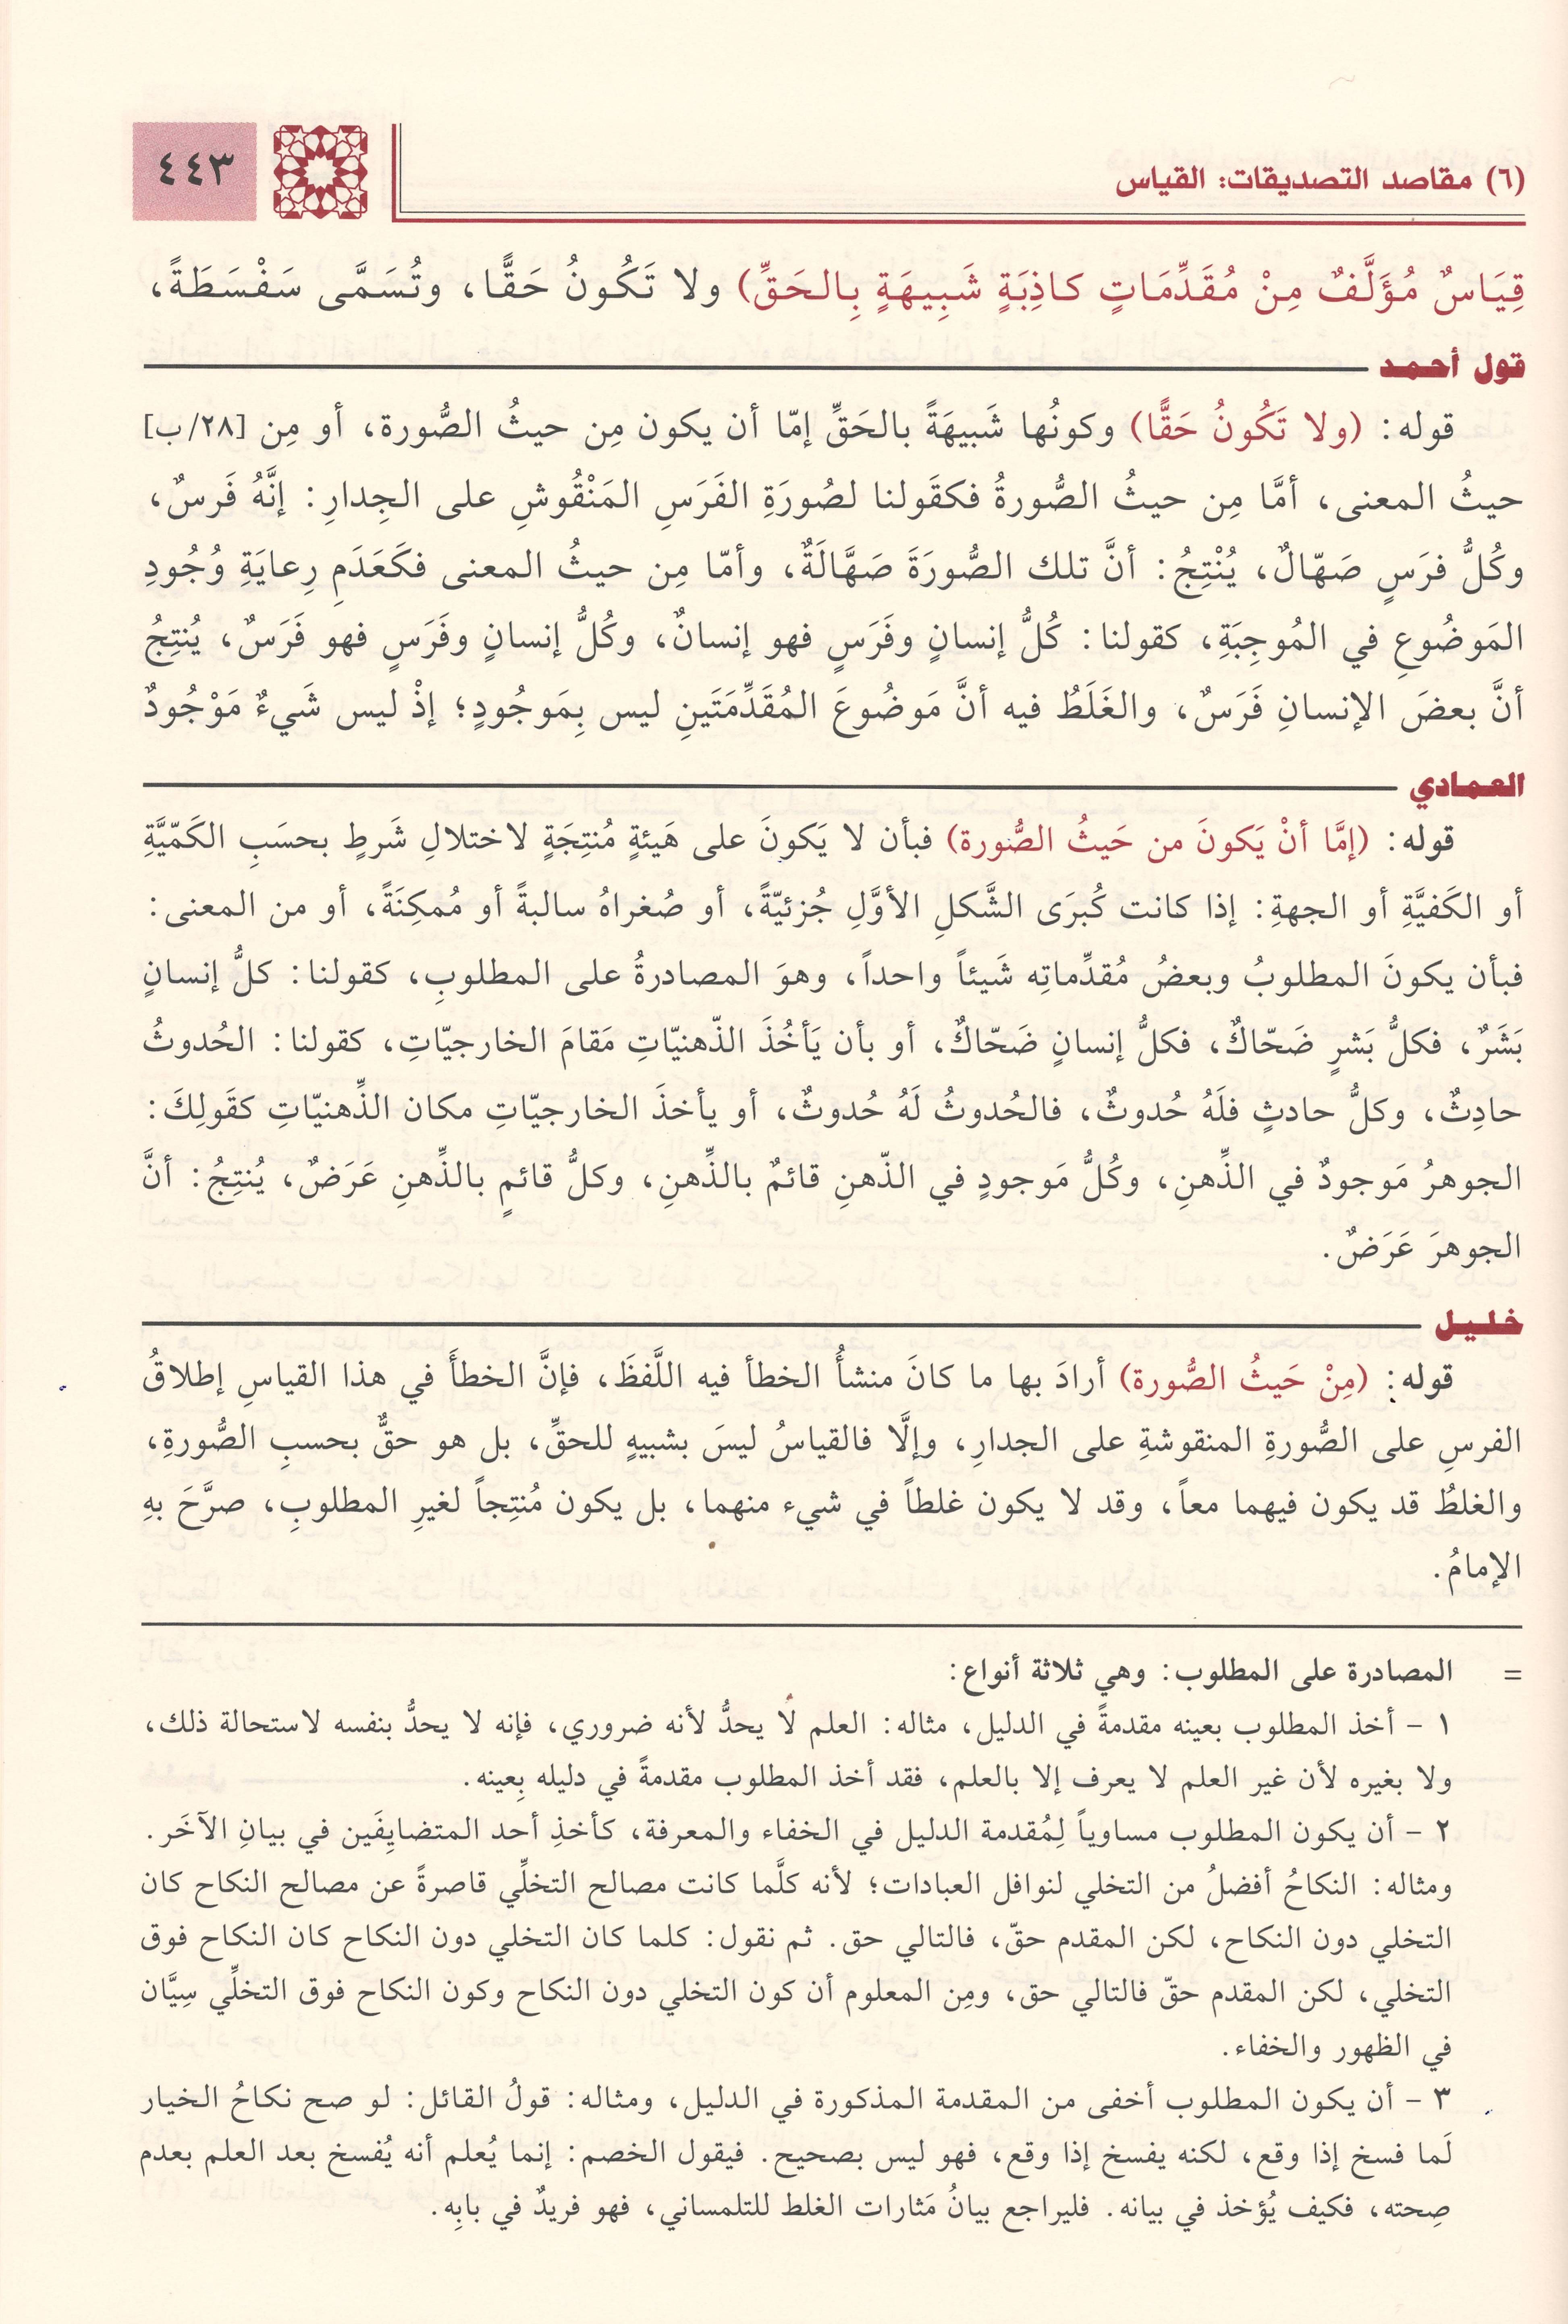 (٦) مقاصد التصديقات: القياس
٤٤٣
قِيَاسٌ مُؤَلَّفٌ مِنْ مُقَدِّمَاتٍ كاذِبَةٍ شَبِيهَةٍ بِالحَقِّ) ولا تَكُونُ حَقًّا، وتُسَمَّى سَفْسَطَةً،
قول أحمد
قوله: (ولا تَكُونُ حَقًّا) وكونُها شَبيهَةً بالحَقِّ إمّا أن يكون مِن حيثُ الصُّورة، أو مِن [٢٨/ب]
حيثُ المعنى، أمَّا مِن حيثُ الصُّورةُ فكقَولنا لصُورَةِ الفَرَسِ المَنْقُوشِ على الجِدارِ: إنَّهُ فَرسٌ،
وكُلُّ فرَسٍ صَهّالٌ، يُنْتِجُ: أنَّ تلك الصُّورَةَ صَهَّالَةٌ، وأمّا مِن حيثُ المعنى فكَعَدَمِ رِعايَةِ وُجُودِ
المَوضُوعِ في المُوجِبَةِ، كقولنا: كُلُّ إنسانٍ وفَرَسٍ فهو إنسانٌ، وكُلُّ إنسانٍ وفَرَسٍ فهو فَرَسٌ، يُنتِجُ
أنَّ بعضَ الإنسانِ فَرَسٌ، والغَلَطُ فيه أنَّ مَوضُوعَ المُقَدِّمَتَينِ ليس بِمَوجُودٍ؛ إذْ ليس شَيءٌ مَوْجُودٌ
العمادي
قوله: (إمَّا أنْ يَكونَ من حَيثُ الصُّورة) فبأن لا يَكونَ على هَيئةٍ مُنتِجَةٍ لاختلالِ شَرطٍ بحسَبِ الكَمّيَّةِ
أو الكَفيَّةِ أو الجهةِ: إذا كانت كُبرَى الشَّكلِ الأوَّلِ جُزئيّةً، أو صُغراهُ سالبةً أو مُمكِنَةً، أو من المعنى:
فبأن يكونَ المطلوبُ وبعضُ مُقدِّماتِه شَيئاً واحداً، وهوَ المصادرةُ على المطلوبِ، كقولنا: كلُّ إنسانٍ
بَشَرٌ، فكلُّ بَشرٍ ضَحّاكٌ، فكلُّ إنسانٍ ضَحّاكٌ، أو بأن يَأخُذَ الذّهنيّاتِ مَقامَ الخارجيّاتِ، كقولنا: الحُدوثُ
حادِثٌ، وكلُّ حادثٍ فلَهُ حُدوثٌ، فالحُدوثُ لَهُ حُدوثٌ، أو يأخذَ الخارجيّاتِ مكان الذِّهنيّاتِ كقَولِكَ:
الجوهرُ مَوجودٌ في الذِّهنِ، وكُلُّ مَوجودٍ في الذّهنِ قائمٌ بالذِّهنِ، وكلُّ قائمٍ بالذِّهنِ عَرَضٌ، يُنتِجُ: أنَّ
الجوهرَ عَرَضٌ.
خليل
قوله: (مِنْ حَيثُ الصُّورة) أرادَ بها ما كانَ منشأُ الخطأ فيه اللَّفظَ، فإنَّ الخطأَ في هذا القياسِ إطلاقُ
الفرسِ على الصُّورةِ المنقوشةِ على الجدارِ، وإلَّا فالقياسُ ليسَ بشبيهٍ للحقِّ، بل هو حقٌّ بحسبِ الصُّورةِ،
والغلطُ قد يكون فيهما معاً، وقد لا يكون غلطاً في شيء منهما، بل يكون مُنتِجاً لغيرِ المطلوبِ، صرَّحَ بهِ
الإمامُ.
= المصادرة على المطلوب: وهي ثلاثة أنواع:
١ - أخذ المطلوب بعينه مقدمةً في الدليل، مثاله: العلم لا يحدُّ لأنه ضروري، فإنه لا يحدُّ بنفسه لاستحالة ذلك،
ولا بغيره لأن غير العلم لا يعرف إلا بالعلم، فقد أخذ المطلوب مقدمةً في دليله بِعينه.
٢ - أن يكون المطلوب مساوياً لِمُقدمة الدليل في الخفاء والمعرفة، كأخذِ أحد المتضايِفَين في بيانِ الآخَر.
ومثاله: النكاحُ أفضلُ من التخلي لنوافل العبادات؛ لأنه كلَّما كانت مصالح التخلِّي قاصرةً عن مصالح النكاح كان
التخلي دون النكاح، لكن المقدم حقّ، فالتالي حق. ثم نقول: كلما كان التخلي دون النكاح كان النكاح فوق
التخلي، لكن المقدم حقّ فالتالي حق، ومِن المعلوم أن كون التخلي دون النكاح وكون النكاح فوق التخلِّي سِيَّان
في الظهور والخفاء.
٣ - أن يكون المطلوب أخفى من المقدمة المذكورة في الدليل، ومثاله: قولُ القائل: لو صح نكاحُ الخيار
لَما فسخ إذا وقع، لكنه يفسخ إذا وقع، فهو ليس بصحيح. فيقول الخصم: إنما يُعلم أنه يُفسخ بعد العلم بعدم
صِحته، فكيف يُؤخذ في بيانه. فليراجع بيانُ مَثارات الغلط للتلمساني، فهو فريدٌ في بابِه.